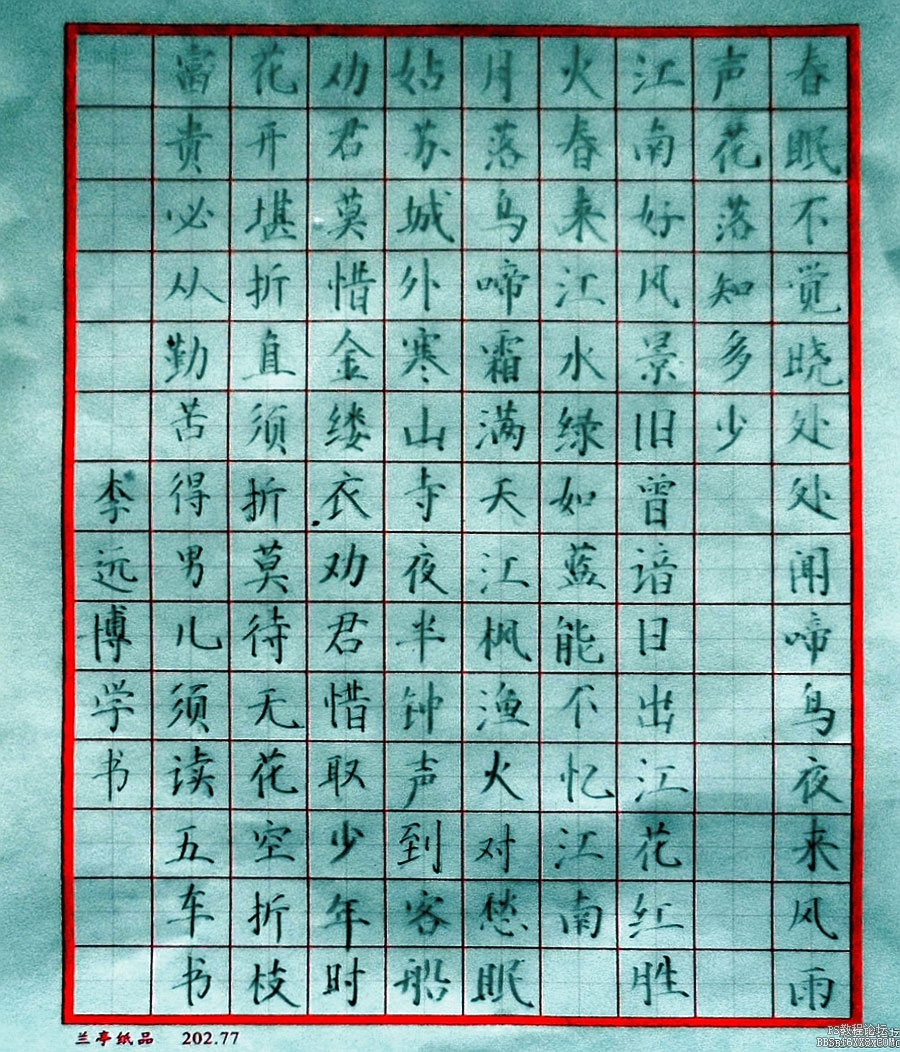 春眠不觉晓处处闻啼鸟夜来风雨
声花落知多少
江南好风景旧曾谙日出江花红胜
火春来江水绿如蓝能不忆江南
月落乌啼霜满天江枫渔火对愁眠
姑苏城外寒山寺夜半钟声到客船
劝君莫惜金缕衣劝君惜取少年时
花开堪折直须折莫待无花空折枝
富贵必从勤苦得男儿须读五车书
李远博学书
兰亭纸品 202.77
PS教程论坛